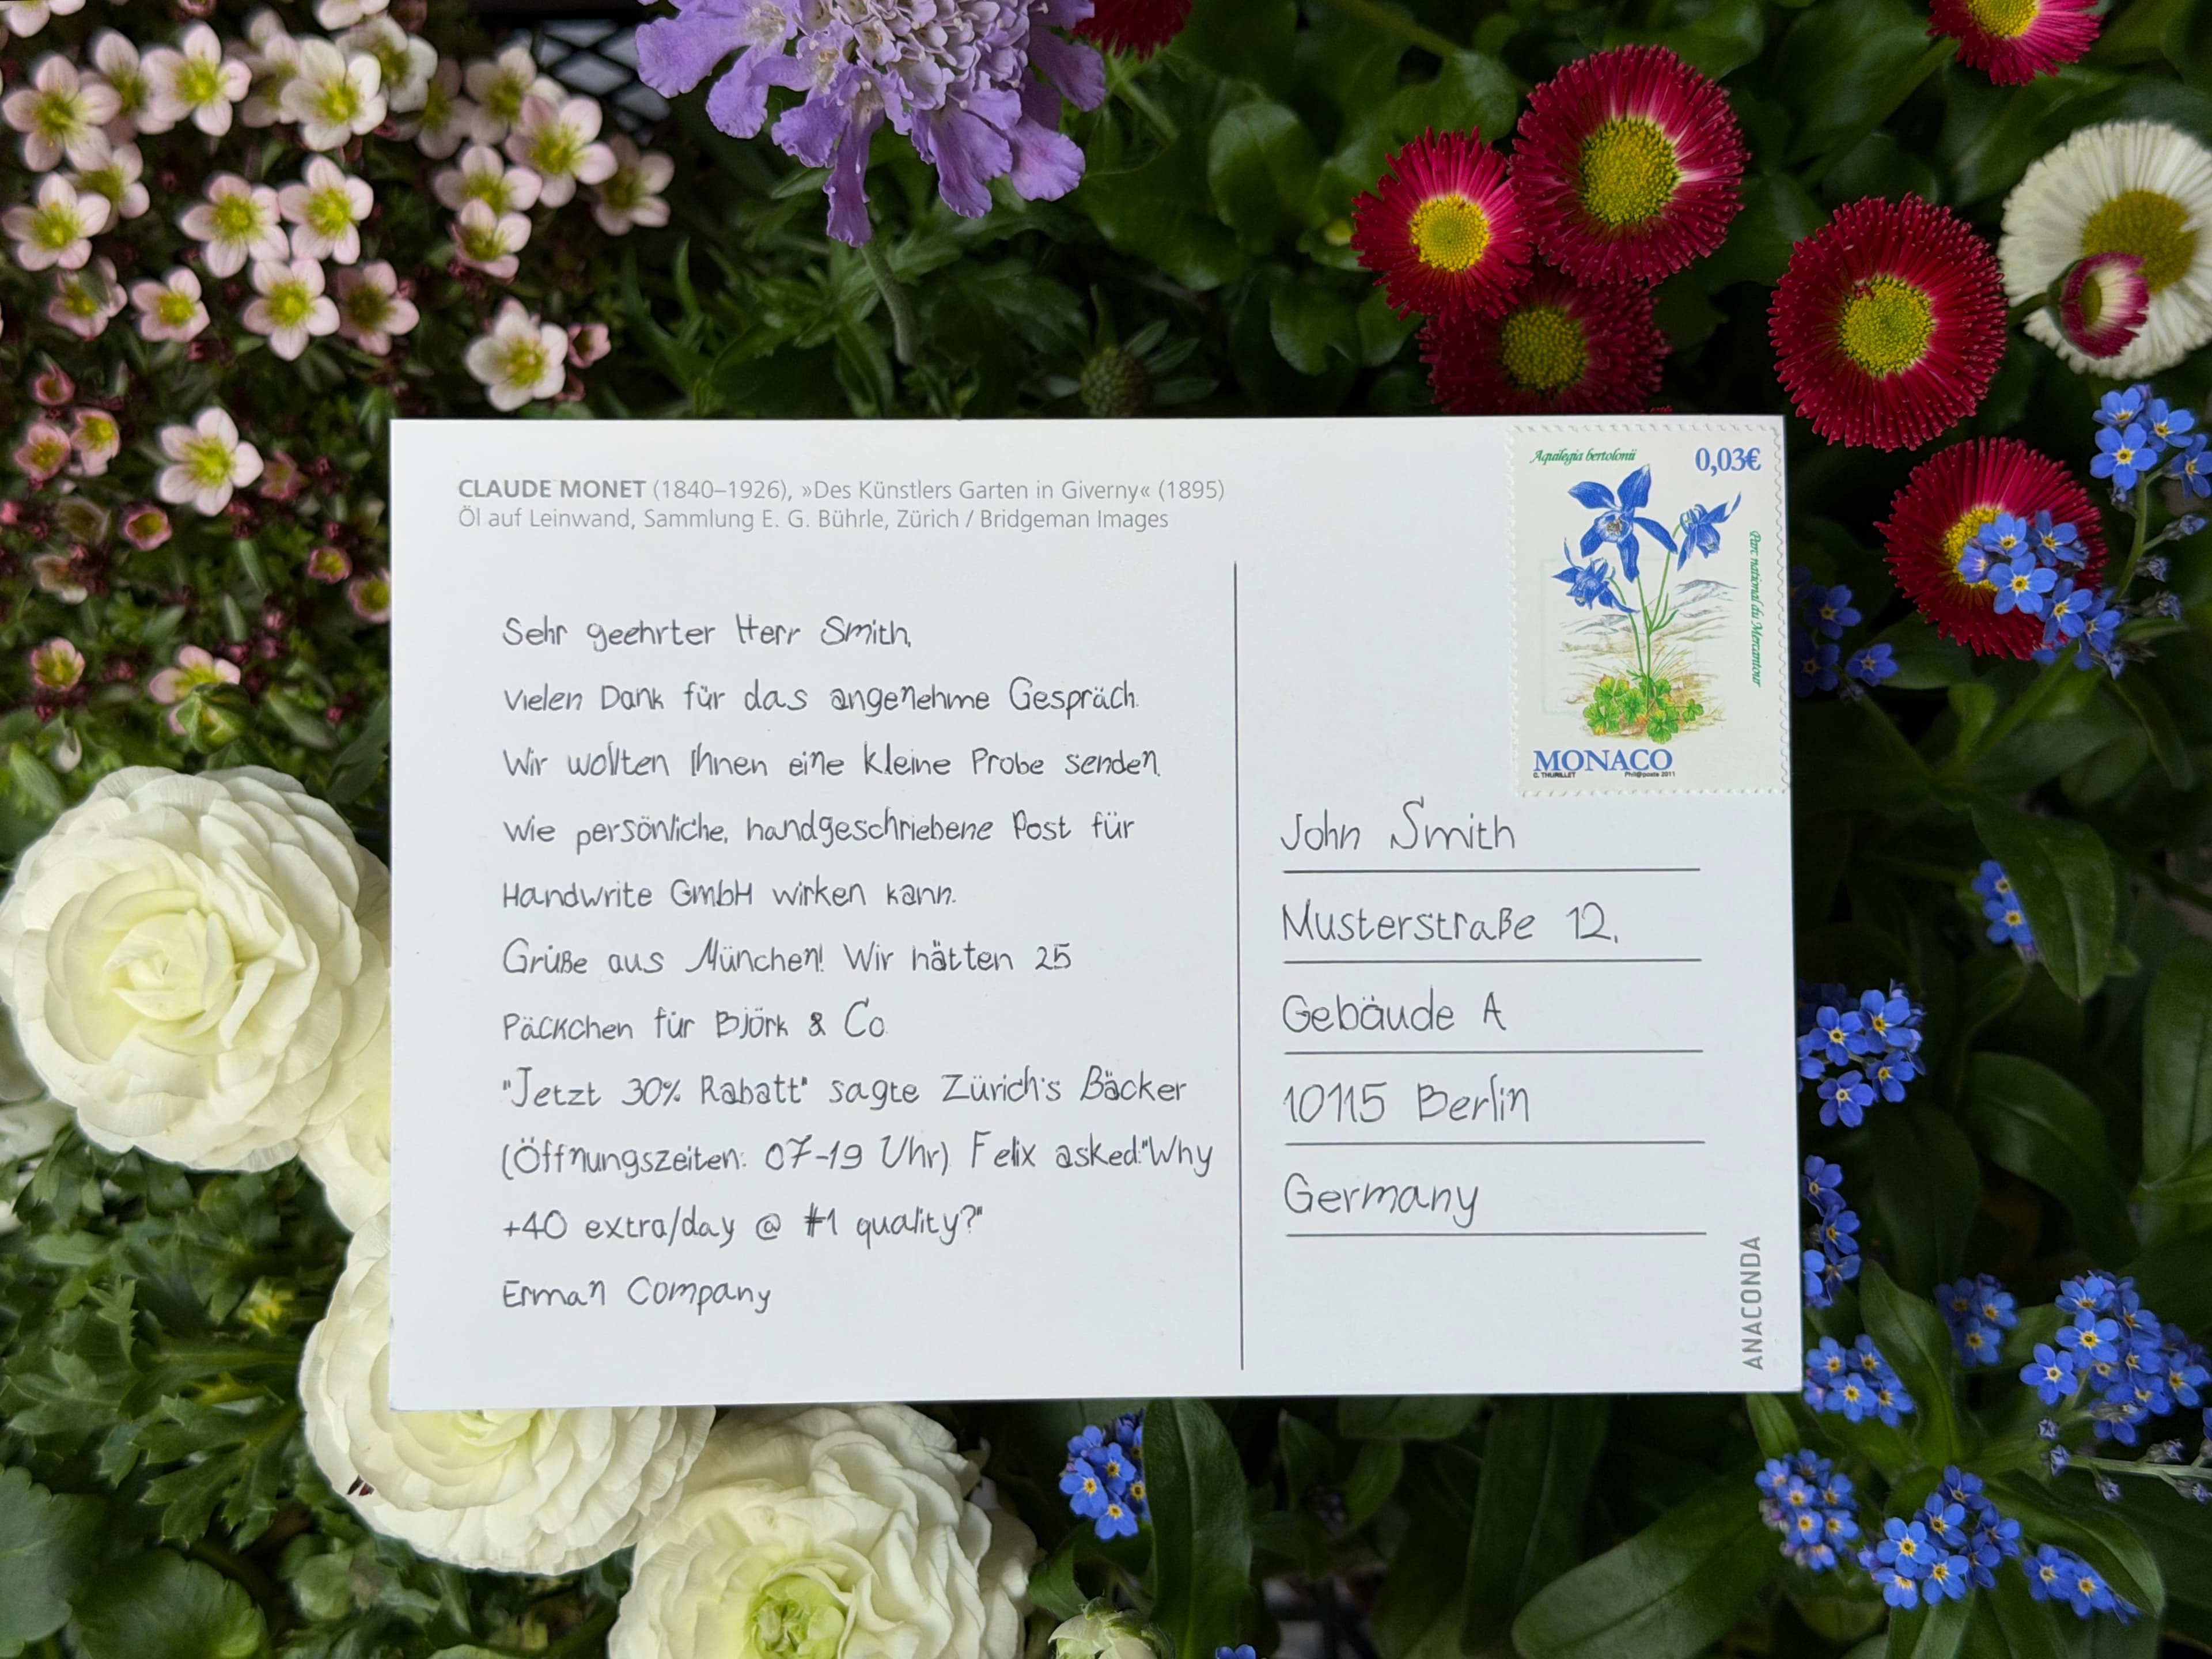 CLAUDE MONET (1840–1926), »Des Künstlers Garten in Giverny« (1895)
Öl auf Leinwand, Sammlung E. G. Bührle, Zürich / Bridgeman Images
Sehr geehrter Herr Smith,
Vielen Dank für das angenehme Gespräch.
Wir wollten Ihnen eine kleine Probe senden.
Wie persönliche, handgeschriebene Post für
Handwrite GmbH wirken kann.
Grüße aus München! Wir hätten 25
Päckchen für Björk & Co.
"Jetzt 30% Rabatt" sagte Zürich's Bäcker
(Öffnungszeiten: 07-19 Uhr). Felix asked:"Why
+40 extra/day @ #1 quality?"
Erman Company
Aquilegia bertolonii
0,03€
Parc national du Mercantour
MONACO
C. THURILLET Phil@poste 2011
John Smith
Musterstraße 12,
Gebäude A
10115 Berlin
Germany
ANACONDA